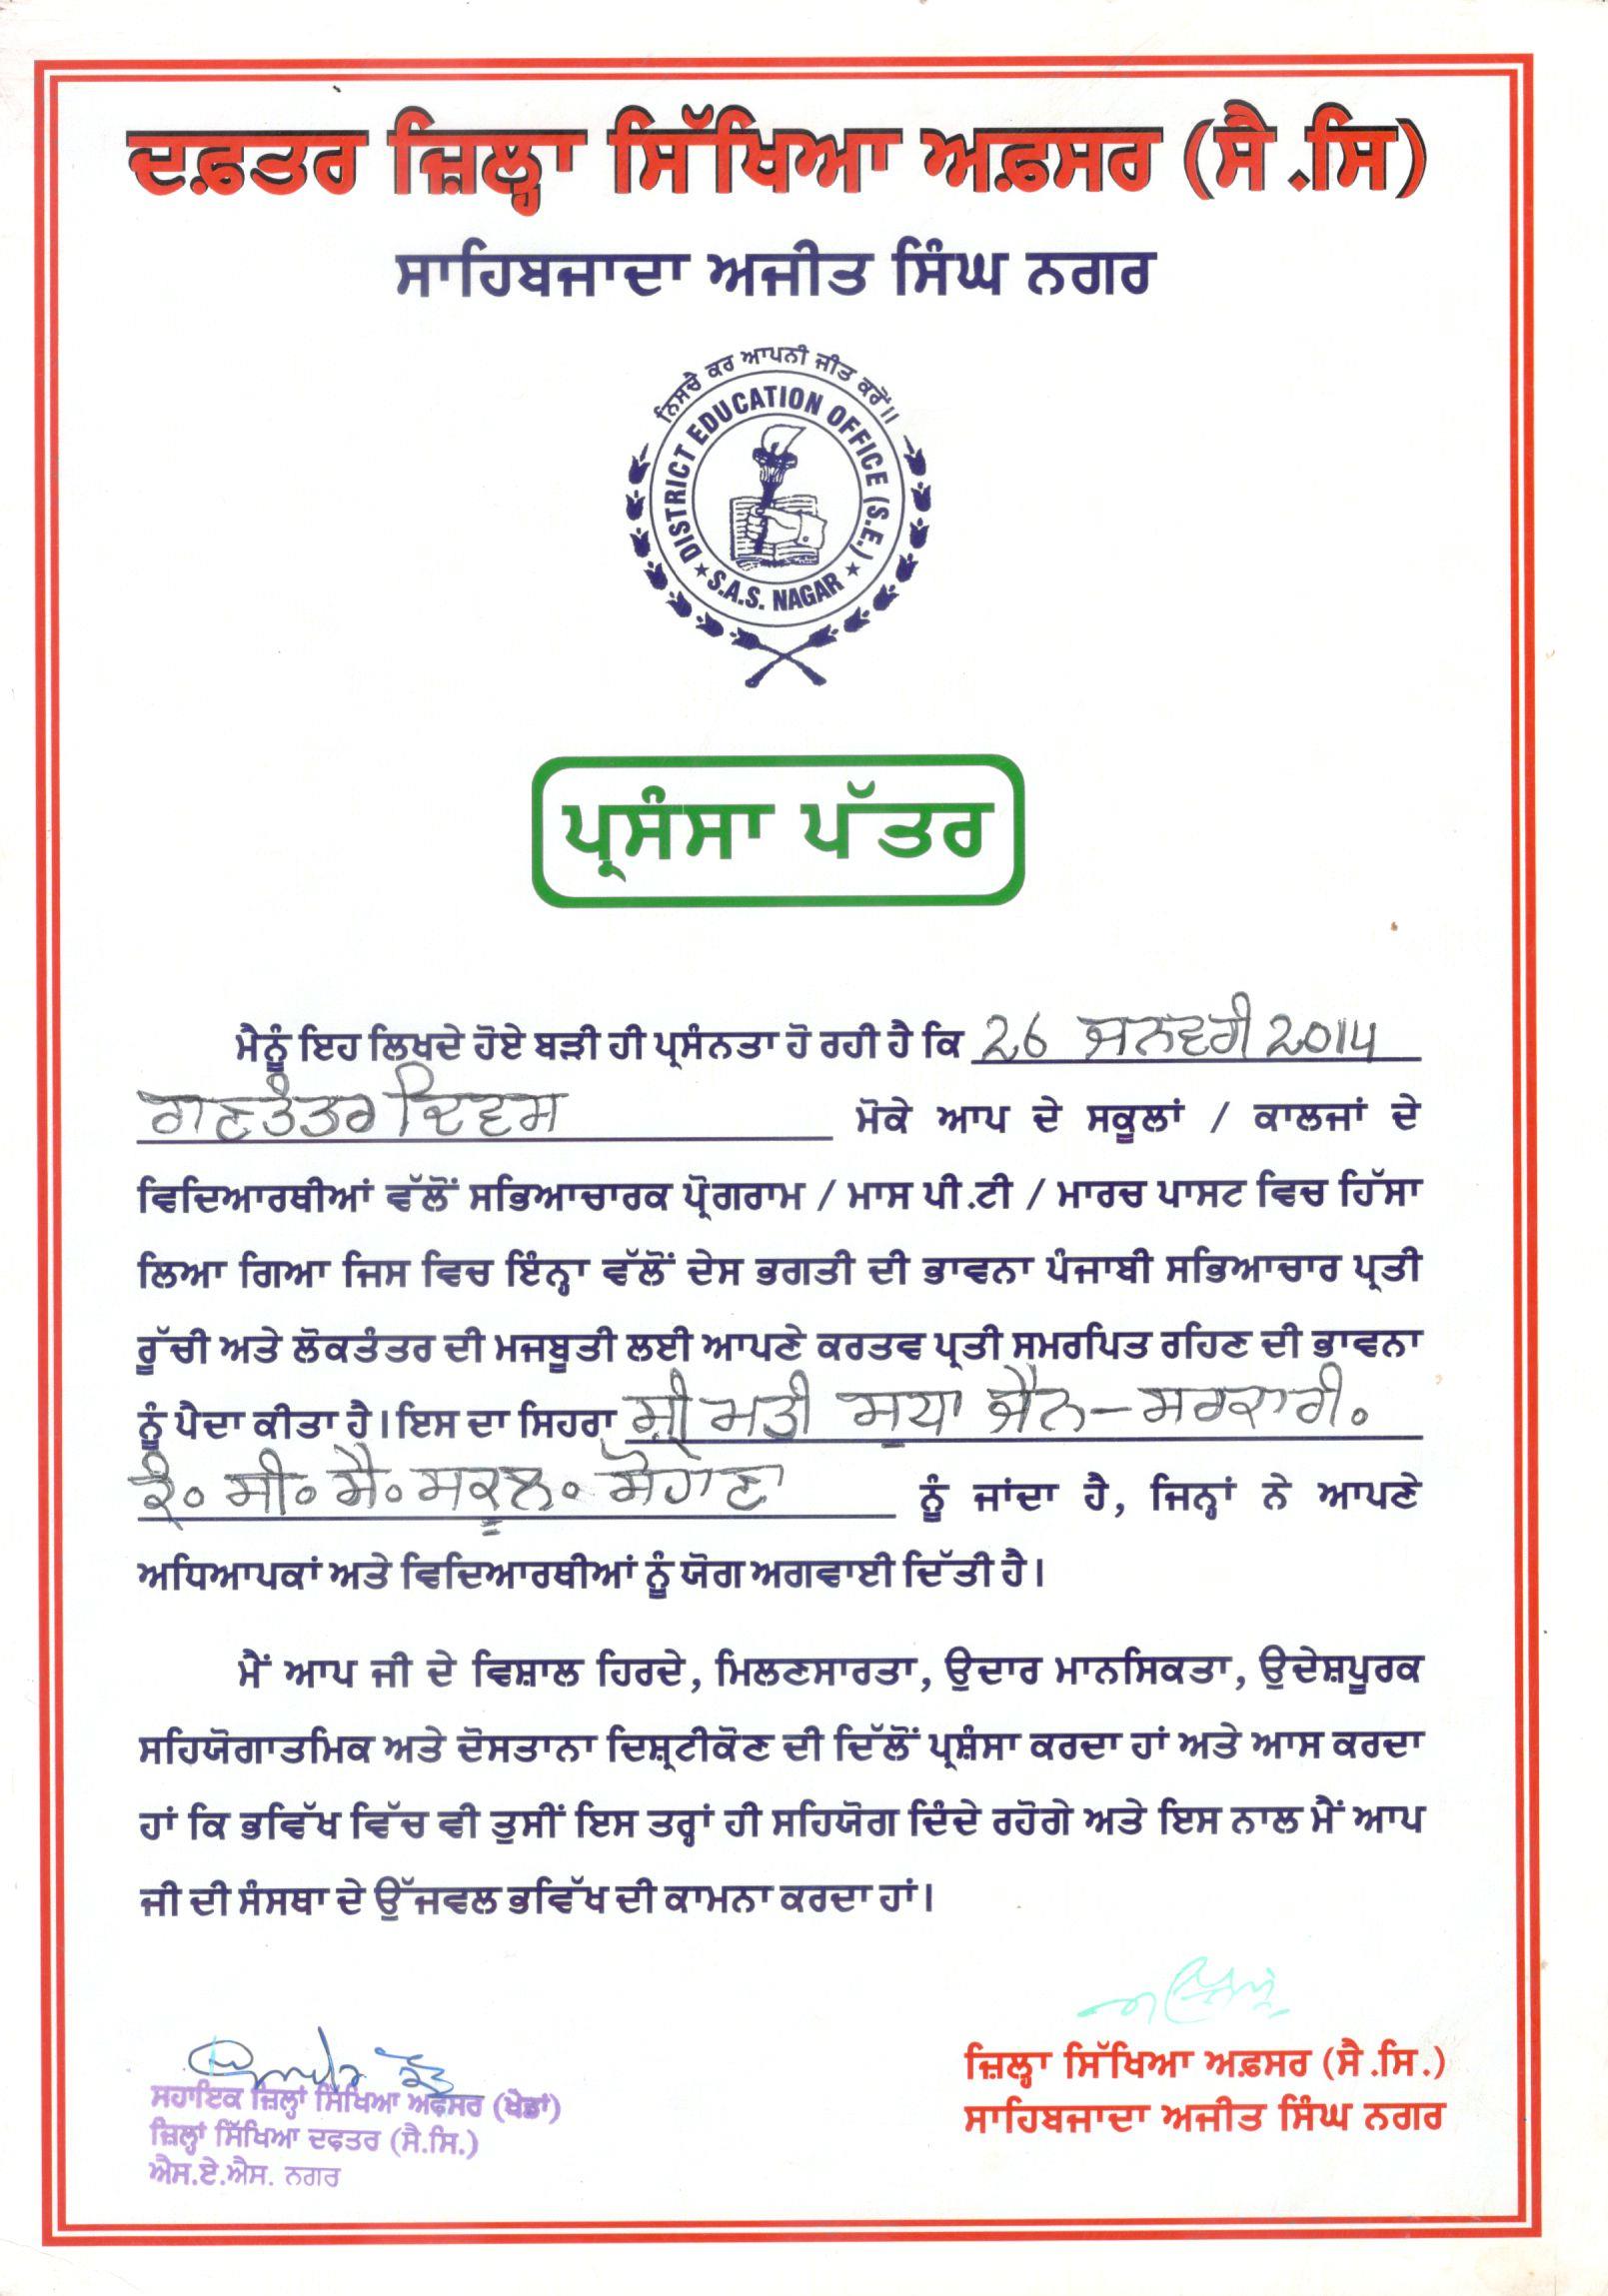 ਦਫ਼ਤਰ ਜ਼ਿਲ੍ਹਾ ਸਿੱਖਿਆ ਅਫ਼ਸਰ (ਸੈ.ਸਿ)
ਸਾਹਿਬਜਾਦਾ ਅਜੀਤ ਸਿੰਘ ਨਗਰ
ਨਿਸਚੈ ਕਰ ਆਪਨੀ ਜੀਤ ਕਰੋਂ॥
DISTRICT EDUCATION OFFICE (S.E.)
S.A.S. NAGAR
ਪ੍ਰਸੰਸਾ ਪੱਤਰ
ਮੈਨੂੰ ਇਹ ਲਿਖਦੇ ਹੋਏ ਬੜੀ ਹੀ ਪ੍ਰਸੰਨਤਾ ਹੋ ਰਹੀ ਹੈ ਕਿ 26 ਜਨਵਰੀ 2014
ਗਣਤੰਤਰ ਦਿਵਸ ਮੋਕੇ ਆਪ ਦੇ ਸਕੂਲਾਂ / ਕਾਲਜਾਂ ਦੇ
ਵਿਦਿਆਰਥੀਆਂ ਵੱਲੋਂ ਸਭਿਆਚਾਰਕ ਪ੍ਰੋਗਰਾਮ / ਮਾਸ ਪੀ.ਟੀ / ਮਾਰਚ ਪਾਸਟ ਵਿਚ ਹਿੱਸਾ
ਲਿਆ ਗਿਆ ਜਿਸ ਵਿਚ ਇੰਨ੍ਹਾ ਵੱਲੋਂ ਦੇਸ ਭਗਤੀ ਦੀ ਭਾਵਨਾ ਪੰਜਾਬੀ ਸਭਿਆਚਾਰ ਪ੍ਰਤੀ
ਰੂੱਚੀ ਅਤੇ ਲੋਕਤੰਤਰ ਦੀ ਮਜਬੂਤੀ ਲਈ ਆਪਣੇ ਕਰਤਵ ਪ੍ਰਤੀ ਸਮਰਪਿਤ ਰਹਿਣ ਦੀ ਭਾਵਨਾ
ਨੂੰ ਪੈਦਾ ਕੀਤਾ ਹੈ। ਇਸ ਦਾ ਸਿਹਰਾ ਸ਼੍ਰੀਮਤੀ ਸੁਧਾ ਜੈਨ-ਸਰਕਾਰੀ.
ਕੰ. ਸੀ. ਸੈ. ਸਕੂਲ. ਸੋਹਾਣਾ ਨੂੰ ਜਾਂਦਾ ਹੈ, ਜਿਨ੍ਹਾਂ ਨੇ ਆਪਣੇ
ਅਧਿਆਪਕਾਂ ਅਤੇ ਵਿਦਿਆਰਥੀਆਂ ਨੂੰ ਯੋਗ ਅਗਵਾਈ ਦਿੱਤੀ ਹੈ।
ਮੈਂ ਆਪ ਜੀ ਦੇ ਵਿਸ਼ਾਲ ਹਿਰਦੇ, ਮਿਲਣਸਾਰਤਾ, ਉਦਾਰ ਮਾਨਸਿਕਤਾ, ਉਦੇਸ਼ਪੂਰਕ
ਸਹਿਯੋਗਾਤਮਿਕ ਅਤੇ ਦੋਸਤਾਨਾ ਦਿਸ਼੍ਰਟੀਕੋਣ ਦੀ ਦਿੱਲੋਂ ਪ੍ਰਸ਼ੰਸਾ ਕਰਦਾ ਹਾਂ ਅਤੇ ਆਸ ਕਰਦਾ
ਹਾਂ ਕਿ ਭਵਿੱਖ ਵਿੱਚ ਵੀ ਤੁਸੀਂ ਇਸ ਤਰ੍ਹਾਂ ਹੀ ਸਹਿਯੋਗ ਦਿੰਦੇ ਰਹੋਗੇ ਅਤੇ ਇਸ ਨਾਲ ਮੈਂ ਆਪ
ਜੀ ਦੀ ਸੰਸਥਾ ਦੇ ਉੱਜਵਲ ਭਵਿੱਖ ਦੀ ਕਾਮਨਾ ਕਰਦਾ ਹਾਂ।
ਸਹਾਇਕ ਜ਼ਿਲ੍ਹਾਂ ਸਿੱਖਿਆ ਅਫਸਰ (ਖੇਡਾਂ)
ਜ਼ਿਲ੍ਹਾਂ ਸਿੱਖਿਆ ਦਫਤਰ (ਸੈ.ਸਿ.)
ਐਸ.ਏ.ਐਸ. ਨਗਰ
ਜ਼ਿਲ੍ਹਾ ਸਿੱਖਿਆ ਅਫ਼ਸਰ (ਸੈ.ਸਿ.)
ਸਾਹਿਬਜਾਦਾ ਅਜੀਤ ਸਿੰਘ ਨਗਰ